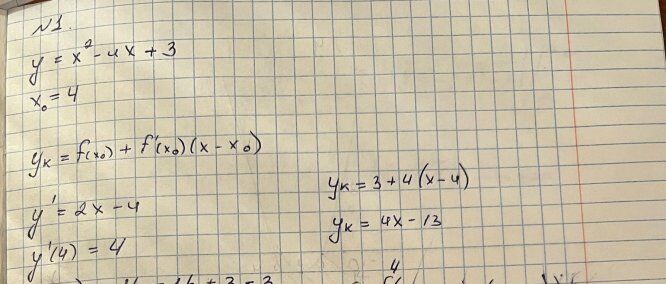 N1.
y = x² - 4x + 3
x₀ = 4
yₖ = f(x₀) + f'(x₀)(x - x₀)
y' = 2x - 4
y'(4) = 4
yₖ = 3 + 4(x - 4)
yₖ = 4x - 13